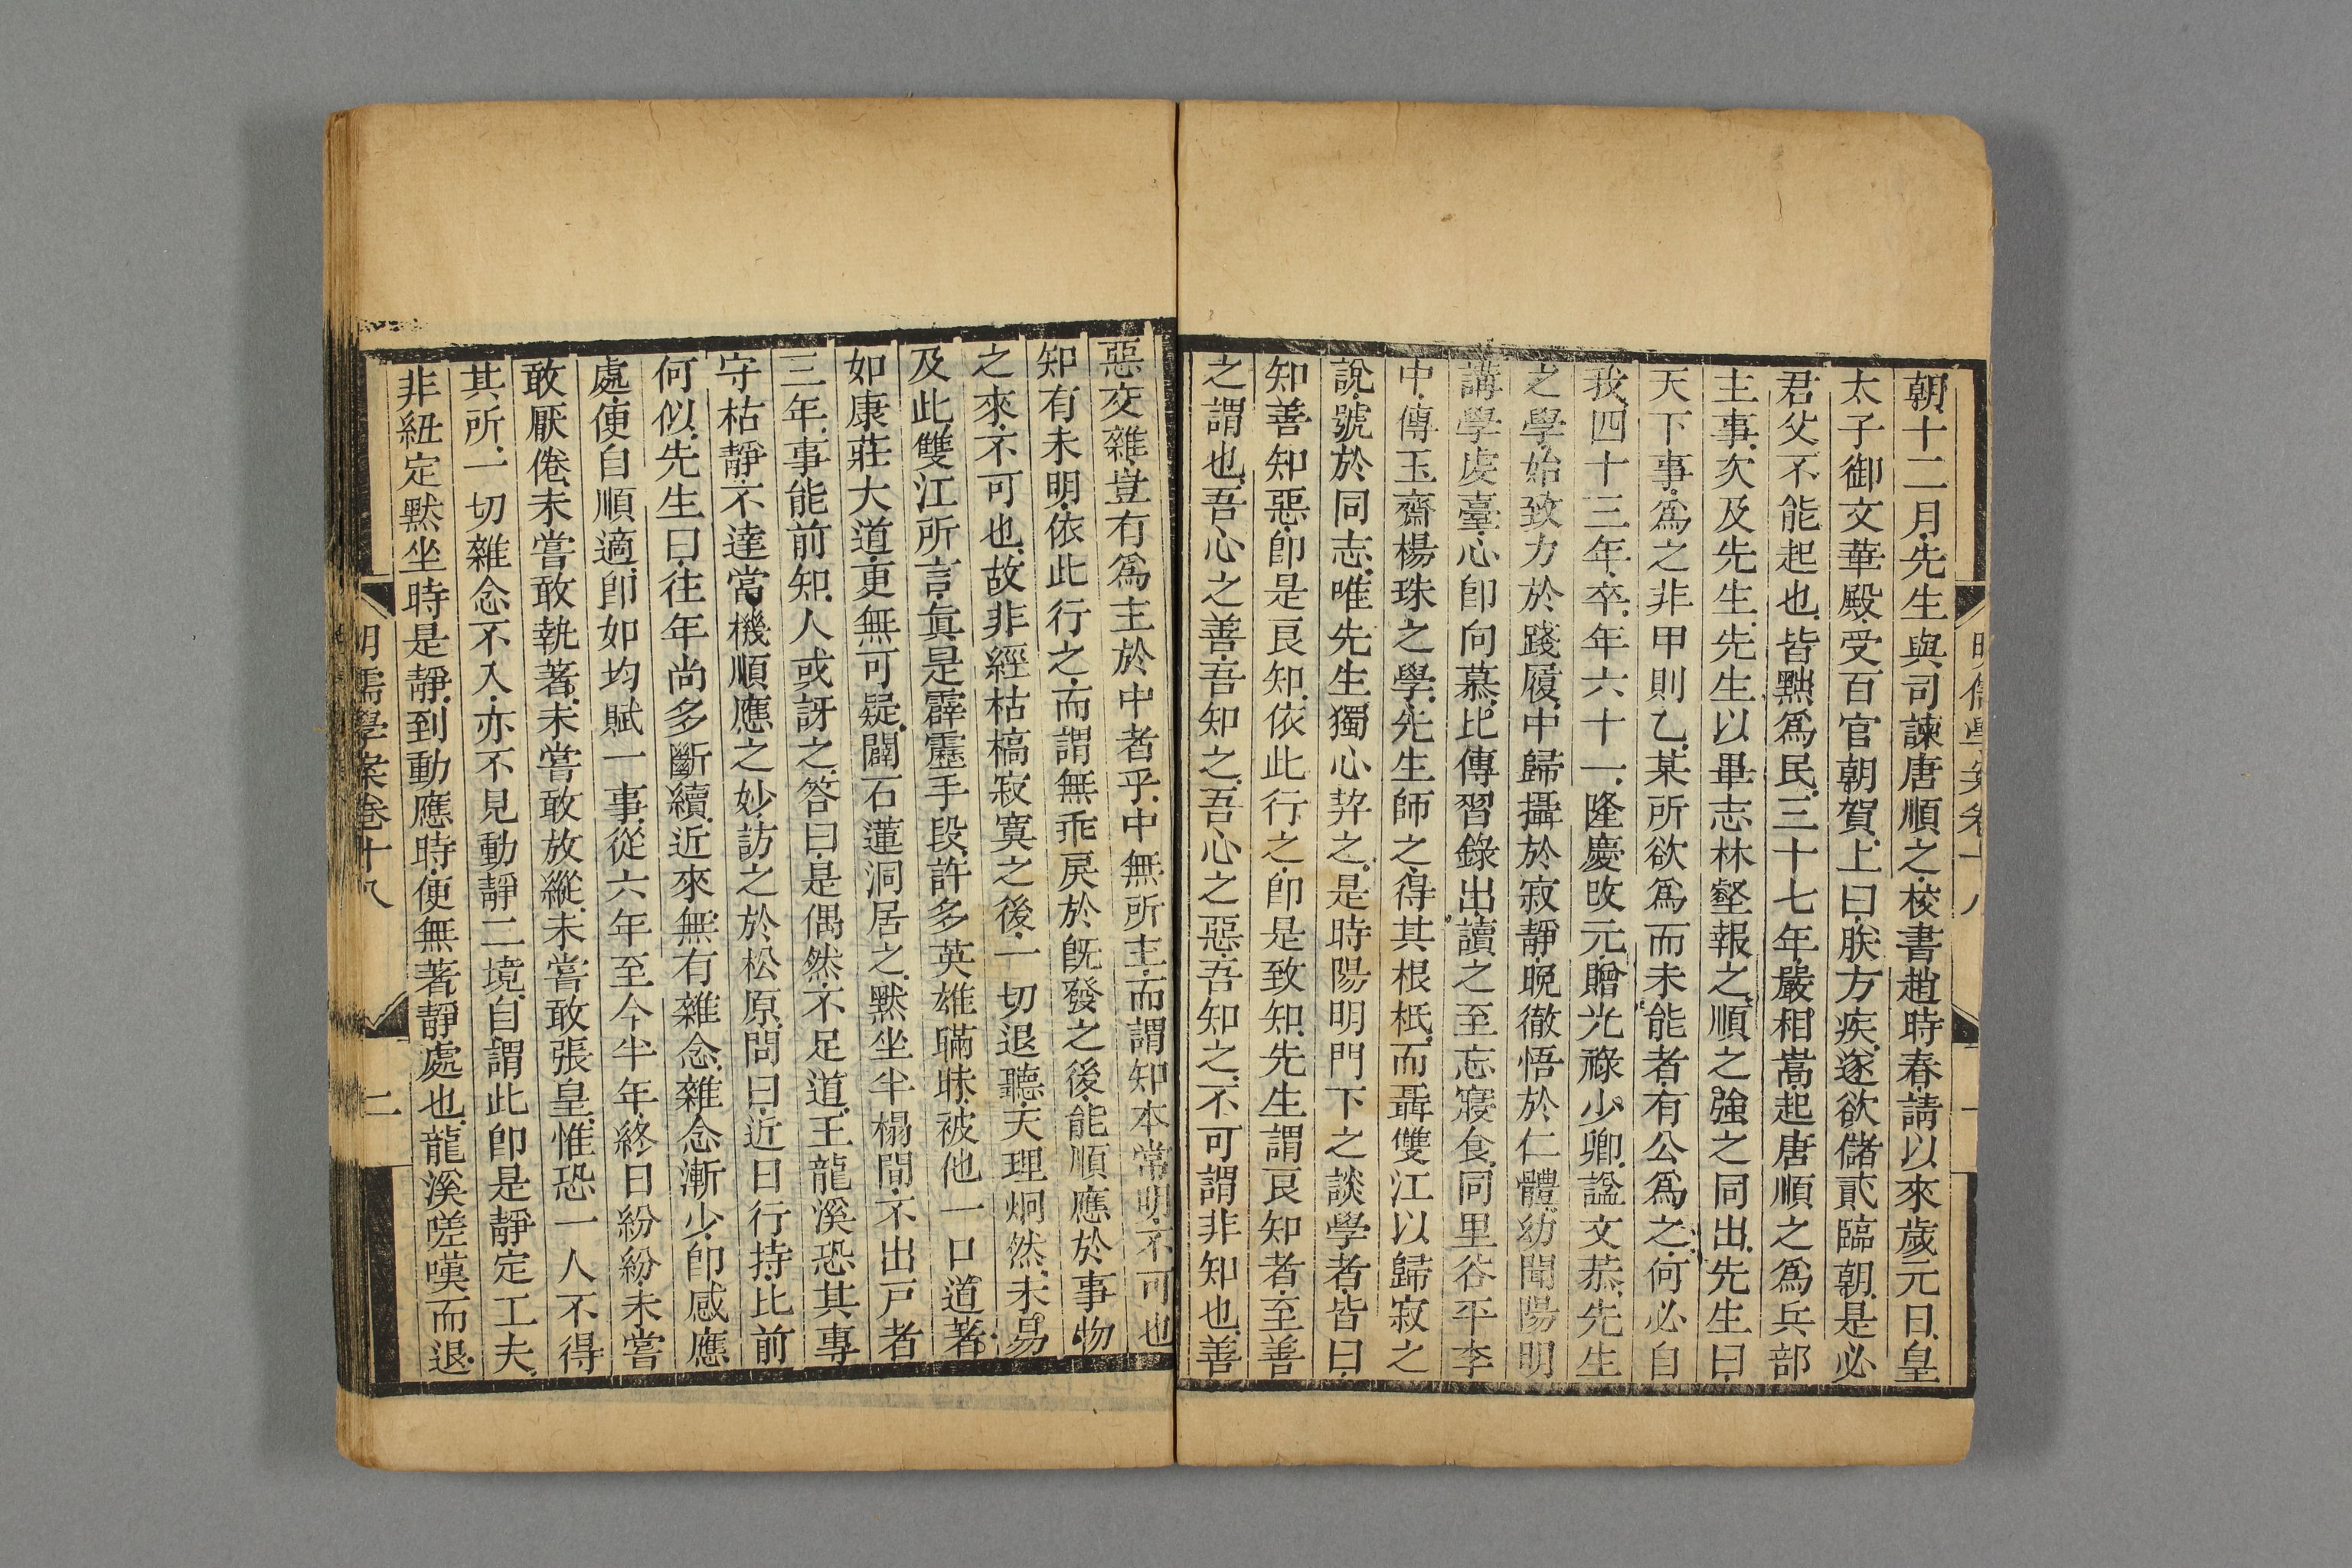 朝十二月先生與司諫唐順之校書趙時春請以來歲元日皇
太子御文華殿受百官朝賀上曰朕方疾遂欲儲貳臨朝是必
君父不能起也皆黜爲民三十七年嚴相嵩起唐順之爲兵部
主事次及先生先生以畢志林壑報之順之強之同出先生曰
天下事爲之非甲則乙某所欲爲而未能者有公爲之何必自
我四十三年卒年六十一隆慶改元贈光祿少卿謚文恭先生
之學始致力於踐履中歸攝於寂靜晚徹悟於仁體幼聞陽明
講學虔臺心卽向慕比傳習錄出讀之至忘寢食同里谷平李
中傳玉齋楊珠之學先生師之得其根柢而聶雙江以歸寂之
說號於同志唯先生獨心契之是時陽明門下之談學者皆曰
知善知惡卽是良知依此行之卽是致知先生謂良知者至善
之謂也吾心之善吾知之吾心之惡吾知之不可謂非知也善
惡交雜豈有爲主於中者乎中無所主而謂知本常明不可也
知有未明依此行之而謂無乖戾於旣發之後能順應於事物
之來不可也故非經枯槁寂寞之後一切退聽天理炯然未易
及此雙江所言眞是霹靂手段許多英雄瞞昧被他一口道著
如康莊大道更無可疑闢石蓮洞居之默坐半榻間不出戸者
三年事能前知人或訝之答曰是偶然不足道王龍溪恐其專
守枯靜不達當機順應之妙訪之於松原問曰近日行持比前
何似先生曰往年尚多斷續近來無有雜念雜念漸少卽感應
處便自順適卽如均賦一事從六年至今半年終日紛紛未嘗
敢厭倦未嘗敢執著未嘗敢放縱未嘗敢張皇惟恐一人不得
其所一切雜念不入亦不見動靜二境自謂此卽是靜定工夫
非紐定默坐時是靜到動應時便無著靜處也龍溪嗟嘆而退
明儒學案卷十八
二